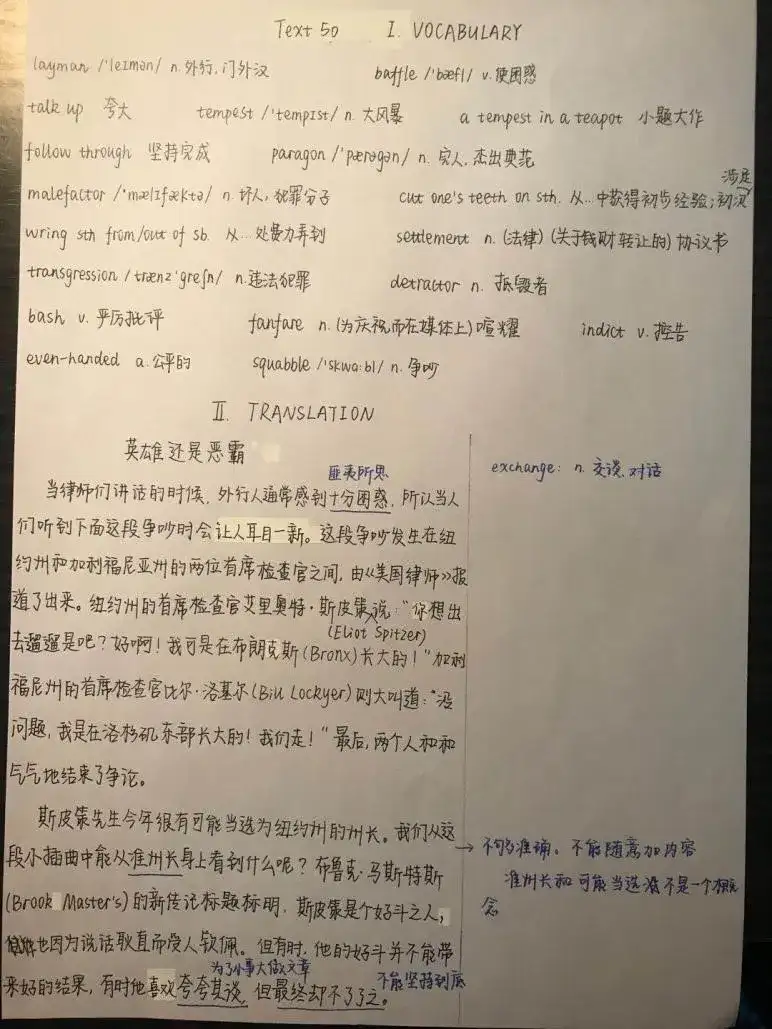 Text 50 I. VOCABULARY
layman /'leɪmən/ n. 外行，门外汉 baffle /'bæfl/ v. 使困惑
talk up 夸大 tempest /'tempɪst/ n. 大风暴 a tempest in a teapot 小题大作
follow through 坚持完成 paragon /'pærəgən/ n. 完人，杰出典范
涉足
malefactor /'mælɪfæktə/ n. 坏人，犯罪分子 cut one's teeth on sth. 从…中获得初步经验；初次
wring sth from/out of sb. 从…处费力弄到 settlement n. (法律)(关于钱财转让的)协议书
transgression /trænz'greʃn/ n. 违法犯罪 detractor n. 诋毁者
bash v. 严厉批评 fanfare n. (为庆祝而在媒体上)喧耀 indict v. 控告
even-handed a. 公平的 squabble /'skwɑ:bl/ n. 争吵
II. TRANSLATION
英雄还是恶霸
exchange: n. 交谈，对话
匪夷所思
当律师们讲话的时候，外行人通常感到十分困惑，所以当人
们听到下面这段争吵时会让人耳目一新。这段争吵发生在纽
约州和加利福尼亚州的两位首席检查官之间，由《美国律师》报
道了出来。纽约州的首席检查官艾里奥特·斯皮策说：“你想出
(Eliot Spitzer)
去遛遛是吧？好啊！我可是在布朗克斯(Bronx)长大的！”加利
福尼州的首席检查官比尔·洛基尔(Bill Lockyer)则大叫道：“没
问题，我是在洛杉矶东部长大的！我们走！”最后，两个人和和
气气地结束了争论。
斯皮策先生今年很有可能当选为纽约州的州长。我们从这
段小插曲中能从准州长身上看到什么呢？布鲁克·马斯特斯
(Brook Master's)的新传记标题标明，斯皮策是个好斗之人，
也因为说话耿直而受人钦佩。但有时，他的好斗并不能带
为了小事大做文章
来好的结果，有时他喜欢夸夸其谈，但最终却不了了之。
不能坚持到底
→ 不够准确。不能随意加内容
准州长和可能当选 不是一个概
念